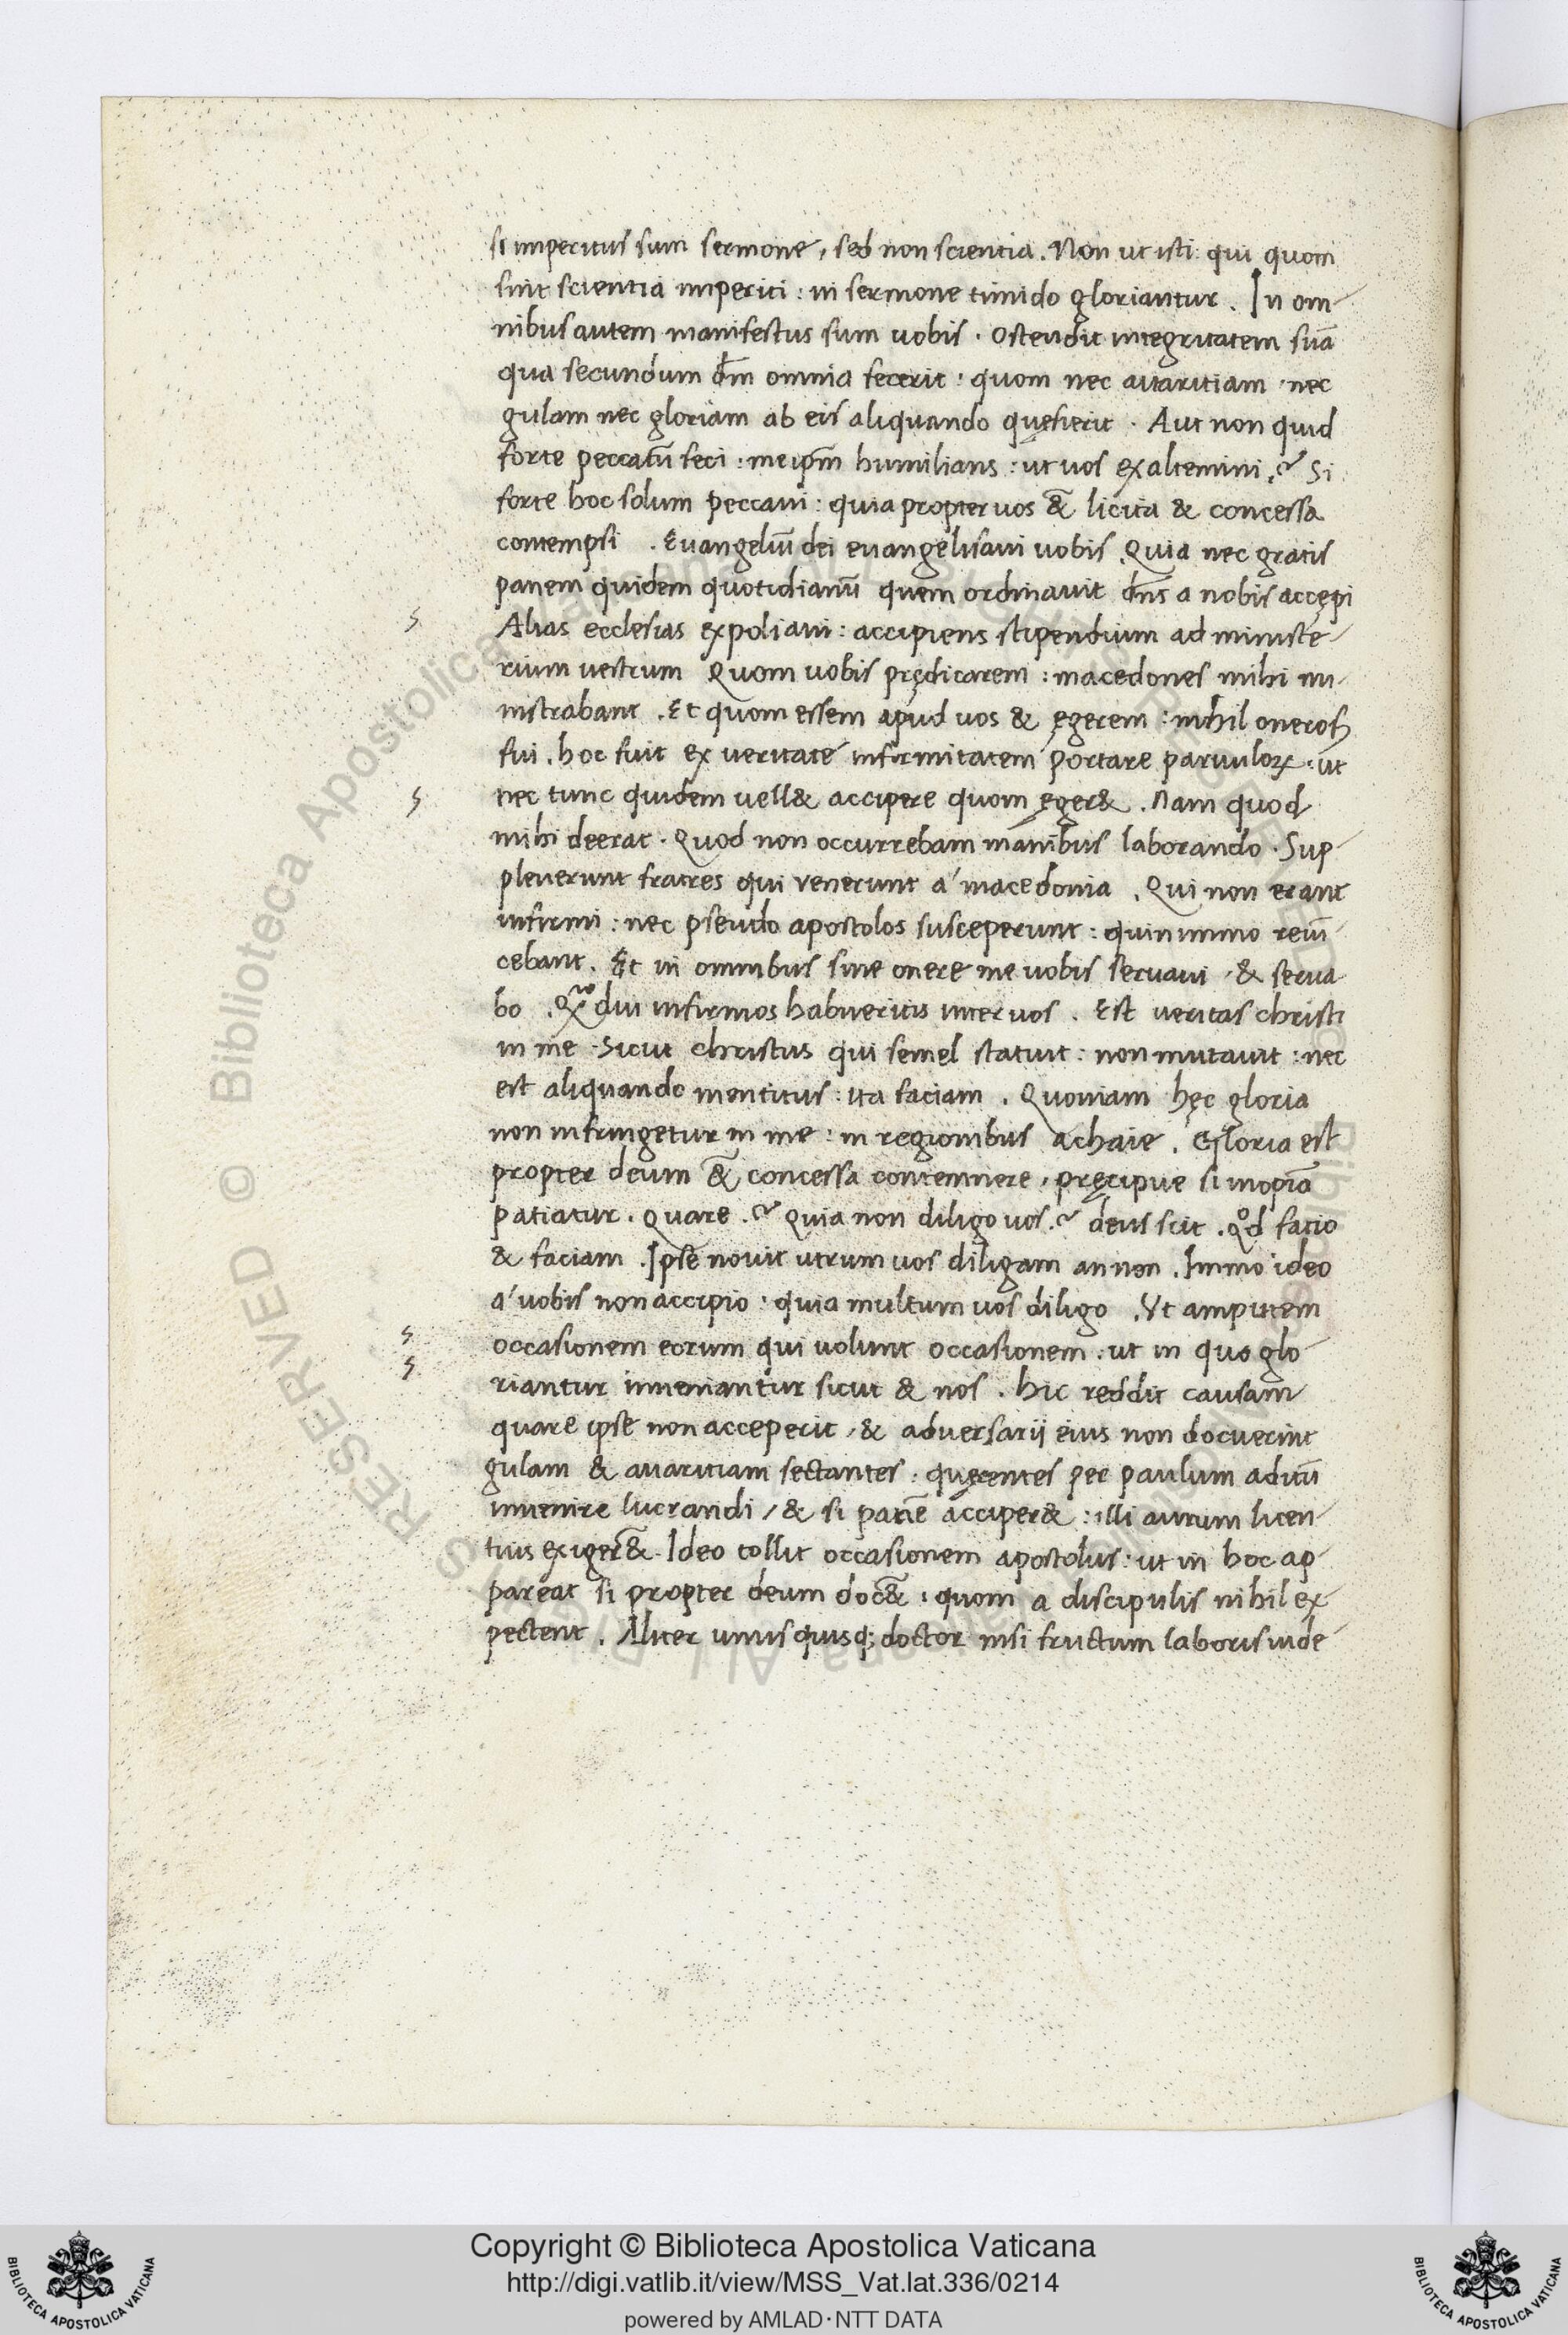 si imperitus sum sermone, sed non scientia. Non ut isti qui quom
sint scientia imperiti: in sermone timido gloriantur. In om-
nibus autem manifestus sum uobis. Ostendit integritatem suā
qua secundum dm̄ omnia fecerit: quom nec auaritiam, nec
gulam nec gloriam ab eis aliquando quęsierit. Aut non quid
forte peccatū feci: me ipm̄ humilians: ut uos exaltemini? Si
forte hoc solum peccaui: quia propter uos &̄ licita & concessa
contempsi. Euangeliū dei euangelisaui uobis. Quia nec gratis
panem quidem quotidianū quem ordinauit dn̄s a nobis accępi
Alias ecclesias expoliaui: accipiens stipendium ad ministe-
rium uestrum Quom uobis prędicarem: macedones mihi mi-
nistrabant. Et quom essem apud uos & ęgerem: nihil onerosꝫ
fui. hoc fuit ex ueritate infirmitatem portare paruuloꝝ: ut
nec tunc quidem uell& accipere quom ęger&. Nam quod
mihi deerat. Quod non occurrebam manibus laborando. Sup-
pleuerunt fratres qui venerunt a' macedonia. Qui non erant
infirmi: nec pseudo apostolos susceperunt: quinimmo reiū-
cebant. Et in omnibus sine onere me uobis seruaui, & serua-
bo. Qͫdiu infirmos habueritis inter uos. Est ueritas christi
in me Sicut christus qui semel statuit: non mutauit: nec
est aliquando mentitus: ita faciam. Quoniam hęc gloria
non infringetur in me: in regionibus achaie. Gloria est
propter deum &̄ concessa contemnere, pręcipue si inopiā
patiatur. Quare? Quia non diligo uos? deus scit. Qͦd facio
& faciam. Ipse nouit utrum uos diligam an non. Immo ideo
a' uobis non accipio: quia multum uos diligo. Vt amputem
occasionem eorum qui uolunt occasionem: ut in quo glo-
riantur inueniantur sicut & nos. hic reddit causam
quare ipse non acceperit, & aduersarij eius non docuerint
gulam & auaritiam sectantes: quęrentes per paulum aditū
inuenire lucrandi, & si panē acciper&: illi aurum licen-
tius exiger&̄. Ideo tollit occasionem apostolus: ut in hoc ap-
pareat si propter deum doc&̄: quom a discipulis nihil ex-
pectent. Aliter unusquisq; doctor nisi fructum laboris uide-
Copyright © Biblioteca Apostolica Vaticana
http://digi.vatlib.it/view/MSS_Vat.lat.336/0214
powered by AMLAD·NTT DATA
BIBLIOTECA APOSTOLICA VATICANA
BIBLIOTECA APOSTOLICA VATICANA